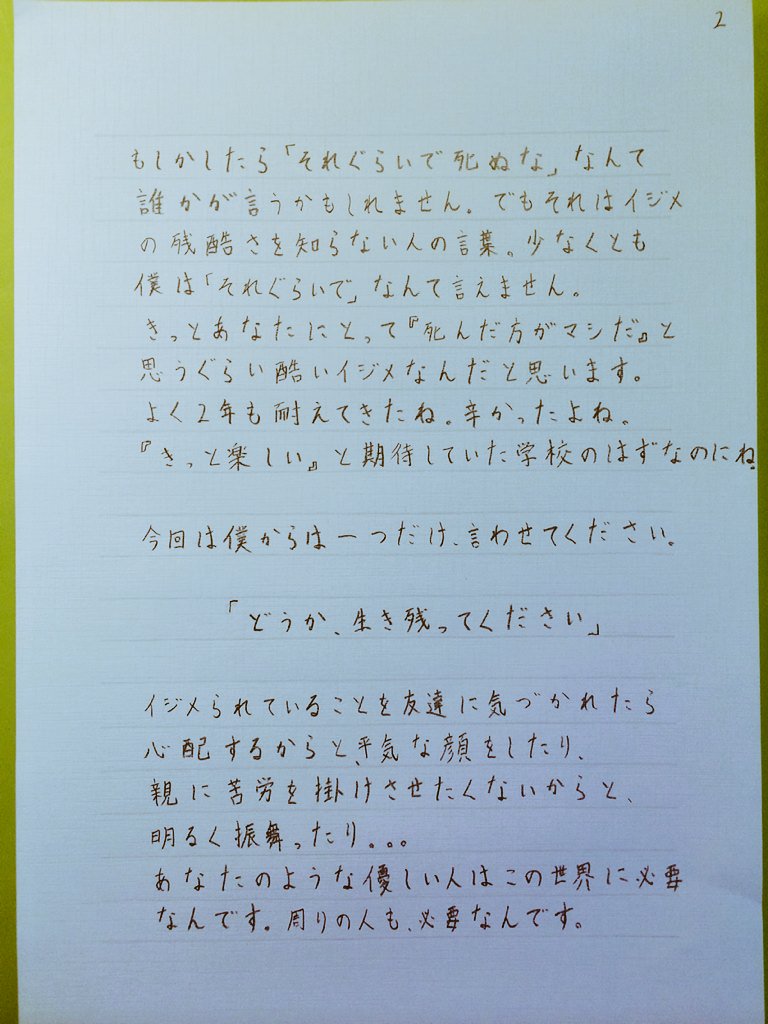 2
もしかしたら「それぐらいで死ぬな」なんて
誰かが言うかもしれません。でもそれはイジメ
の残酷さを知らない人の言葉。少なくとも
僕は「それぐらいで」なんて言えません。
きっとあなたにとって『死んだ方がマシだ』と
思うぐらい酷いイジメなんだと思います。
よく2年も耐えてきたね。辛かったよね。
『きっと楽しい』と期待していた学校のはずなのにね。
今回は僕からは一つだけ、言わせてください。
「どうか、生き残ってください」
イジメられていることを友達に気づかれたら
心配するからと、平気な顔をしたり、
親に苦労を掛けさせたくないからと、
明るく振舞ったり。。。
あなたのような優しい人はこの世界に必要
なんです。周りの人も、必要なんです。